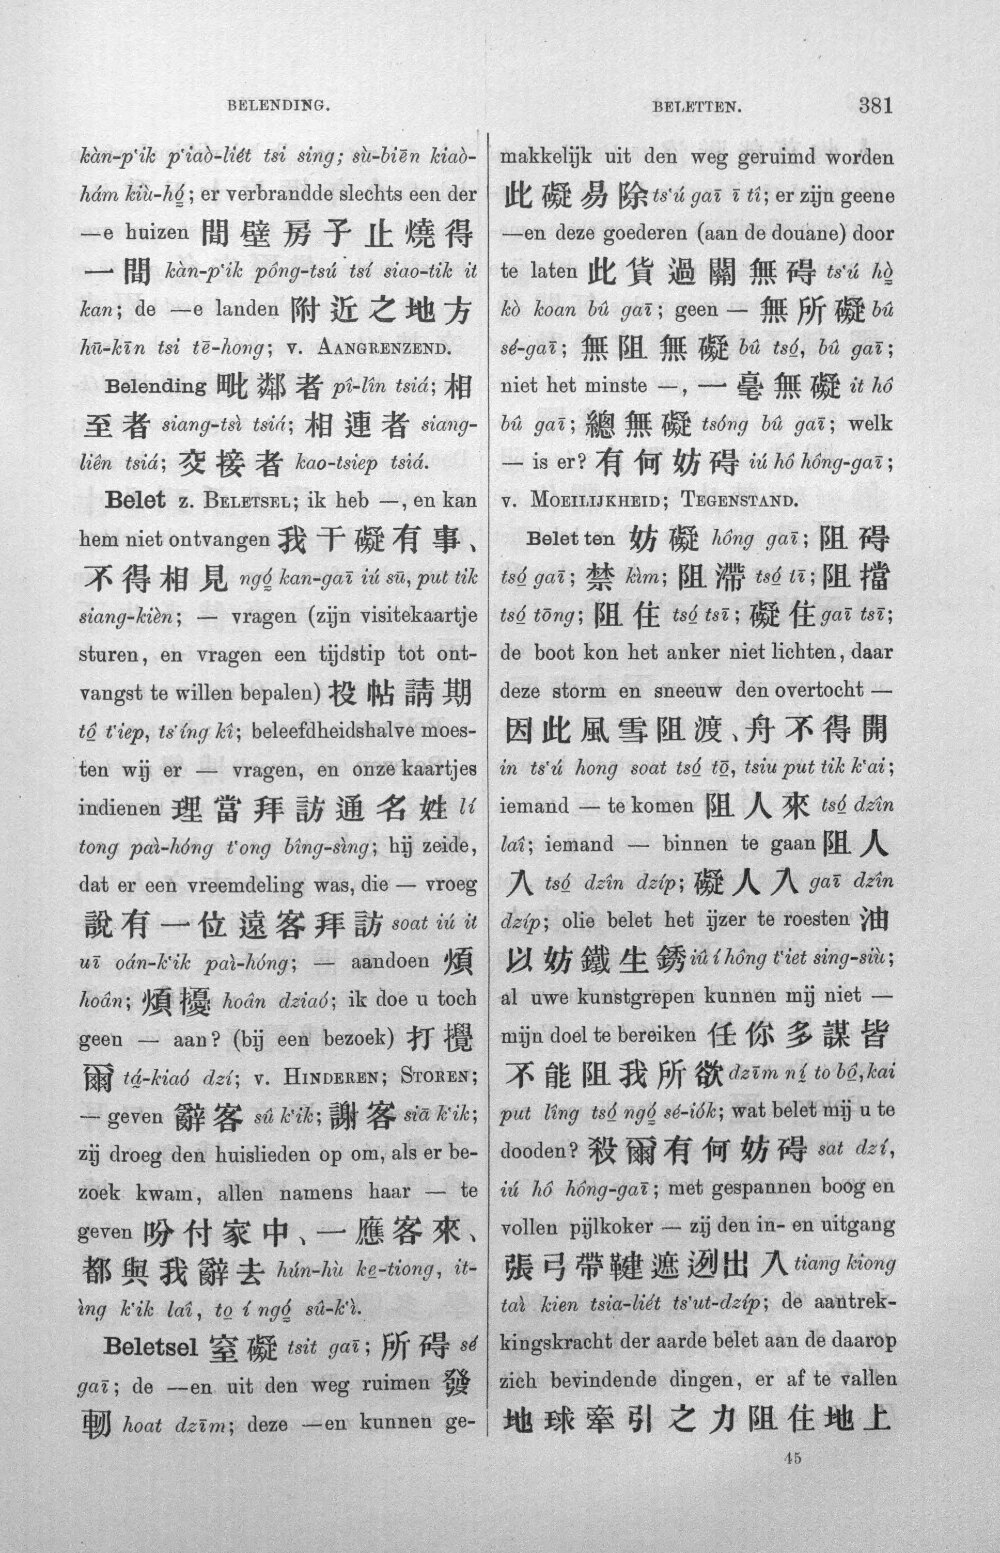 BELENDING.
BELETTEN. 381
kàn-p‘ik p‘iaò-liét tsi sing; sù-biēn kiaò-
hám kiù-hó̤; er verbrandde slechts een der
—e huizen 間壁房子止燒得
一間 kàn-p‘ik pông-tsú tsí siao-tik it
kan; de —e landen 附近之地方
hū-kīn tsi tē-hong; v. AANGRENZEND.
Belending 毗鄰者 pî-lîn tsiá; 相
至者 siang-tsì tsiá; 相連者 siang-
liên tsiá; 交接者 kao-tsiep tsiá.
Belet z. BELETSEL; ik heb —, en kan
hem niet ontvangen 我干礙有事、
不得相見 ngó̤ kan-gaī iú sū, put tik
siang-kièn; — vragen (zijn visitekaartje
sturen, en vragen een tijdstip tot ont-
vangst te willen bepalen) 投帖請期
tô̤ t‘iep, ts‘íng kî; beleefdheidshalve moes-
ten wij er — vragen, en onze kaartjes
indienen 理當拜訪通名姓 lí
tong paì-hóng t‘ong bîng-sìng; hij zeide,
dat er een vreemdeling was, die — vroeg
說有一位遠客拜訪 soat iú it
uī oán-k‘ik paì-hóng; — aandoen 煩
hoân; 煩擾 hoân dziaó; ik doe u toch
geen — aan? (bij een bezoek) 打攪
爾 tá̤-kiaó dzí; v. HINDEREN; STOREN;
— geven 辭客 sû k‘ik; 謝客 siā k‘ik;
zij droeg den huislieden op om, als er be-
zoek kwam, allen namens haar — te
geven 吩付家中、一應客來、
都與我辭去 hún-hù ke̤-tiong, it-
ìng k‘ik laî, to̤ í ngó̤ sû-k‘ì.
Beletsel 窒礙 tsit gaī; 所碍 sé
gaī; de —en uit den weg ruimen 發
軔 hoat dzīm; deze —en kunnen ge-
makkelijk uit den weg geruimd worden
此礙易除 ts‘ú gaī ī tî; er zijn geene
—en deze goederen (aan de douane) door
te laten 此貨過關無碍 ts‘ú hò̤
kò koan bû gaī; geen — 無所礙 bû
sé-gaī; 無阻無礙 bû tsó̤, bû gaī;
niet het minste —, 一毫無礙 it hô
bû gaī; 總無礙 tsóng bû gaī; welk
— is er? 有何妨碍 iú hô hông-gaī;
v. MOEILIJKHEID; TEGENSTAND.
Beletten 妨礙 hông gaī; 阻碍
tsó̤ gaī; 禁 kìm; 阻滯 tsó̤ tī; 阻擋
tsó̤ tōng; 阻住 tsó̤ tsī; 礙住 gaī tsī;
de boot kon het anker niet lichten, daar
deze storm en sneeuw den overtocht —
因此風雪阻渡、舟不得開
in ts‘ú hong soat tsó̤ tō̤, tsiu put tik k‘ai;
iemand — te komen 阻人來 tsó̤ dzîn
laî; iemand — binnen te gaan 阻人
入 tsó̤ dzîn dzíp; 礙人入 gaī dzîn
dzíp; olie belet het ijzer te roesten 油
以妨鐵生銹 iû í hông t‘iet sing-siù;
al uwe kunstgrepen kunnen mij niet —
mijn doel te bereiken 任你多謀皆
不能阻我所欲 dzīm ní̤ to bô̤, kai
put lîng tsó̤ ngó̤ sé-iók; wat belet mij u te
dooden? 殺爾有何妨碍 sat dzí,
iú hô hông-gaī; met gespannen boog en
vollen pijlkoker — zij den in- en uitgang
張弓帶鞬遮迾出入 tiang kiong
taì kien tsia-liét ts‘ut-dzíp; de aantrek-
kingskracht der aarde belet aan de daarop
zich bevindende dingen, er af te vallen
地球牽引之力阻住地上
45